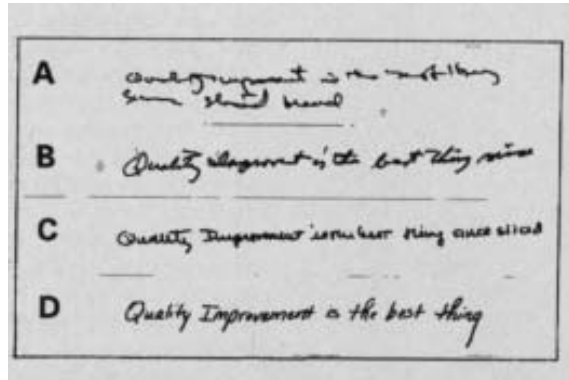 A Quality Improvement is the best thing
since sliced bread
B Quality Improvement is the best thing since
C Quality Improvement is the best thing since sliced
D Quality Improvement is the best thing